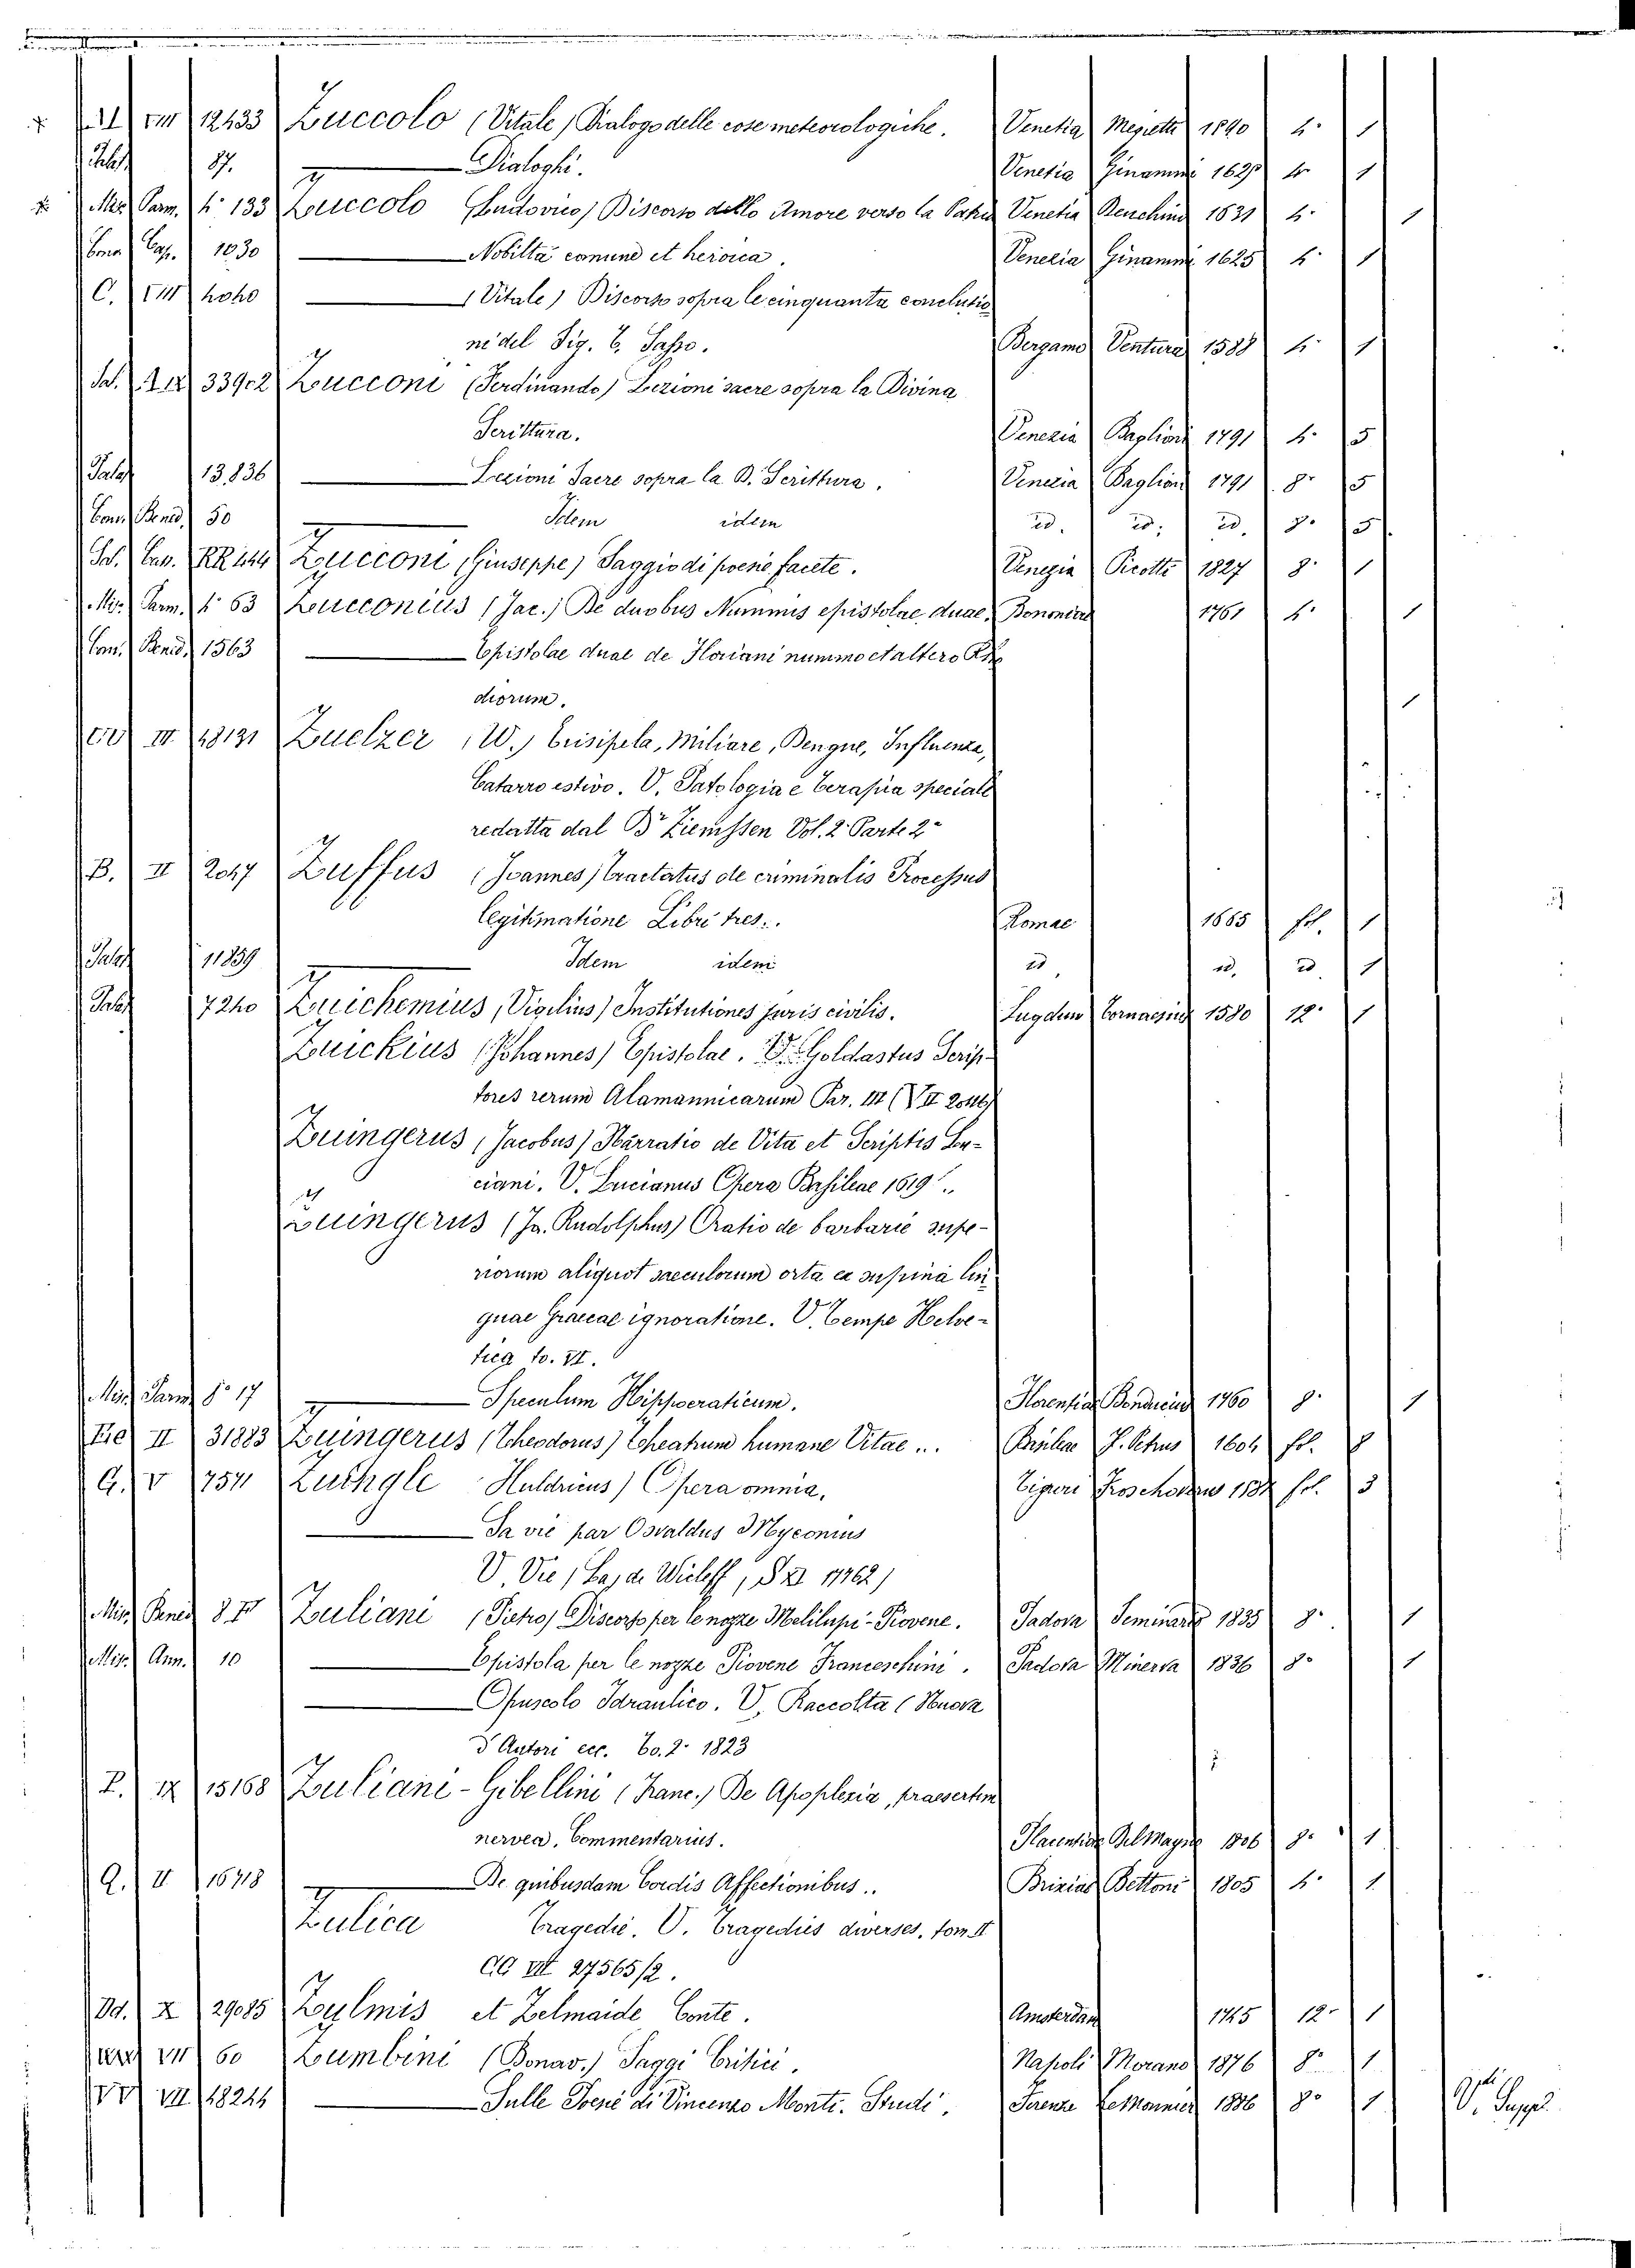 VIII 12433 Zuccolo (Vitale) Dialogo delle cose meteorologiche. Venetia 4° 1
87. ——— Dialoghi. Venetia Ginammi 4° 1
Mis. Parm. 4° 133 Zuccolo (Ludovico) Discorso dello Amore verso la Patria Venetia Deuchino 1631 4° 1
Cap. 1030 ——— Nobiltà comune et heroica. Venezia Ginammi 1625 4° 1
C. VIII 4040 ——— (Vitale) Discorso sopra le cinquanta conclusio
ni del Sig. T. Tasso. Bergamo Ventura 1588 4° 1
Sal. 33902 Zucconi (Ferdinando) Lezioni sacre sopra la Divina
Scrittura. Venezia Baglioni 1791 4° 5
13,836 ——— Lezioni Sacre sopra la D. Scrittura. Venezia Baglioni 1791 8° 5
Cons. Bened. 50 Idem idem id. id. id. 8° 5
RR 144 Zucconi (Giuseppe) Saggio di poesie facete. Venezia Picotti 1827 8° 1
Mis. Parm. 4° 63 Zucconius (Jac.) De duobus Nummis epistolae duae. Bononiae 1761 4° 1
Cons. Bened. 1563 ——— Epistolae duae de Floriani nummo et altero Rho
diorum. 1
III 18131 Zuelzer (W.) Erisipela, Miliare, Dengue, Influenza,
Catarro estivo. V. Patologia e Terapia speciale
redatta dal Dr Ziemssen Vol. 2° Parte 2a
B. II 2047 Zuffus (Joannes) Tractatus de criminalis Processus
legitimatione Libri tres.. Romae 1665 fol. 1
11839 Idem idem id. id. id. 1
7240 Zuichemius (Viglius) Institutiones juris civilis. Lugduni 1580 12° 1
Zuickius (Johannes) Epistolae. V. Goldastus Scrip-
tores rerum Alamannicarum Par. III
Zuingerus (Jacobus) Narratio de Vita et Scriptis Lu-
ciani. V. Lucianus Opera Basileae 1619..
Zuingerus (Jo. Rudolphus) Oratio de barbarie supe-
riorum aliquot saeculorum orta ex supina lin
guae Graecae ignoratione. V. Tempe Helve-
tica to. VI.
Mis. Parm. 8° 17 ——— Speculum Hippocraticum. Florentiae 1760 8° 1
II 31883 Zuingerus (Theodorus) Theatrum humane Vitae ... Basileae 1604 fol. 8
G. V 7571 Zuingle Huldricus) Opera omnia. Tiguri fol. 3
——— Sa vie par Osvaldus Myconius
V. Vie (La) de Wicleff,
Mis. Bened. Zuliani (Pietro) Discorso per le nozze Melilupi-Piovene. Padova Seminario 1835 8° 1
Mis. Ann. 10 ——— Epistola per le nozze Piovene Franceschini. Padova Minerva 1836 8° 1
——— Opuscolo Idraulico. V. Raccolta (Nuova
d'Autori ecc. To. 2° 1823
P. IX 15168 Zuliani-Gibellini (Franc.) De Apoplexia, praesertim
nervea, Commentarius. Placentiae Del Majno 1806 8° 1
Q. II 16718 ——— De quibusdam Cordis Affectionibus.. Brixiae Bettoni 1805 4° 1
Zulica Tragedie. V. Tragedies diverses, tom. II
CC VII 27565/2.
X 29085 Zulmis et Zelmaide Conte. Amsterdam 1745 12° 1
VII 60 Zumbini (Bonav.) Saggi Critici. Napoli Morano 1876 8° 1
VII 18244 ——— Sulle Poesie di Vincenzo Monti. Studi. Firenze Le Monnier 1886 8° 1 V. Suppl.